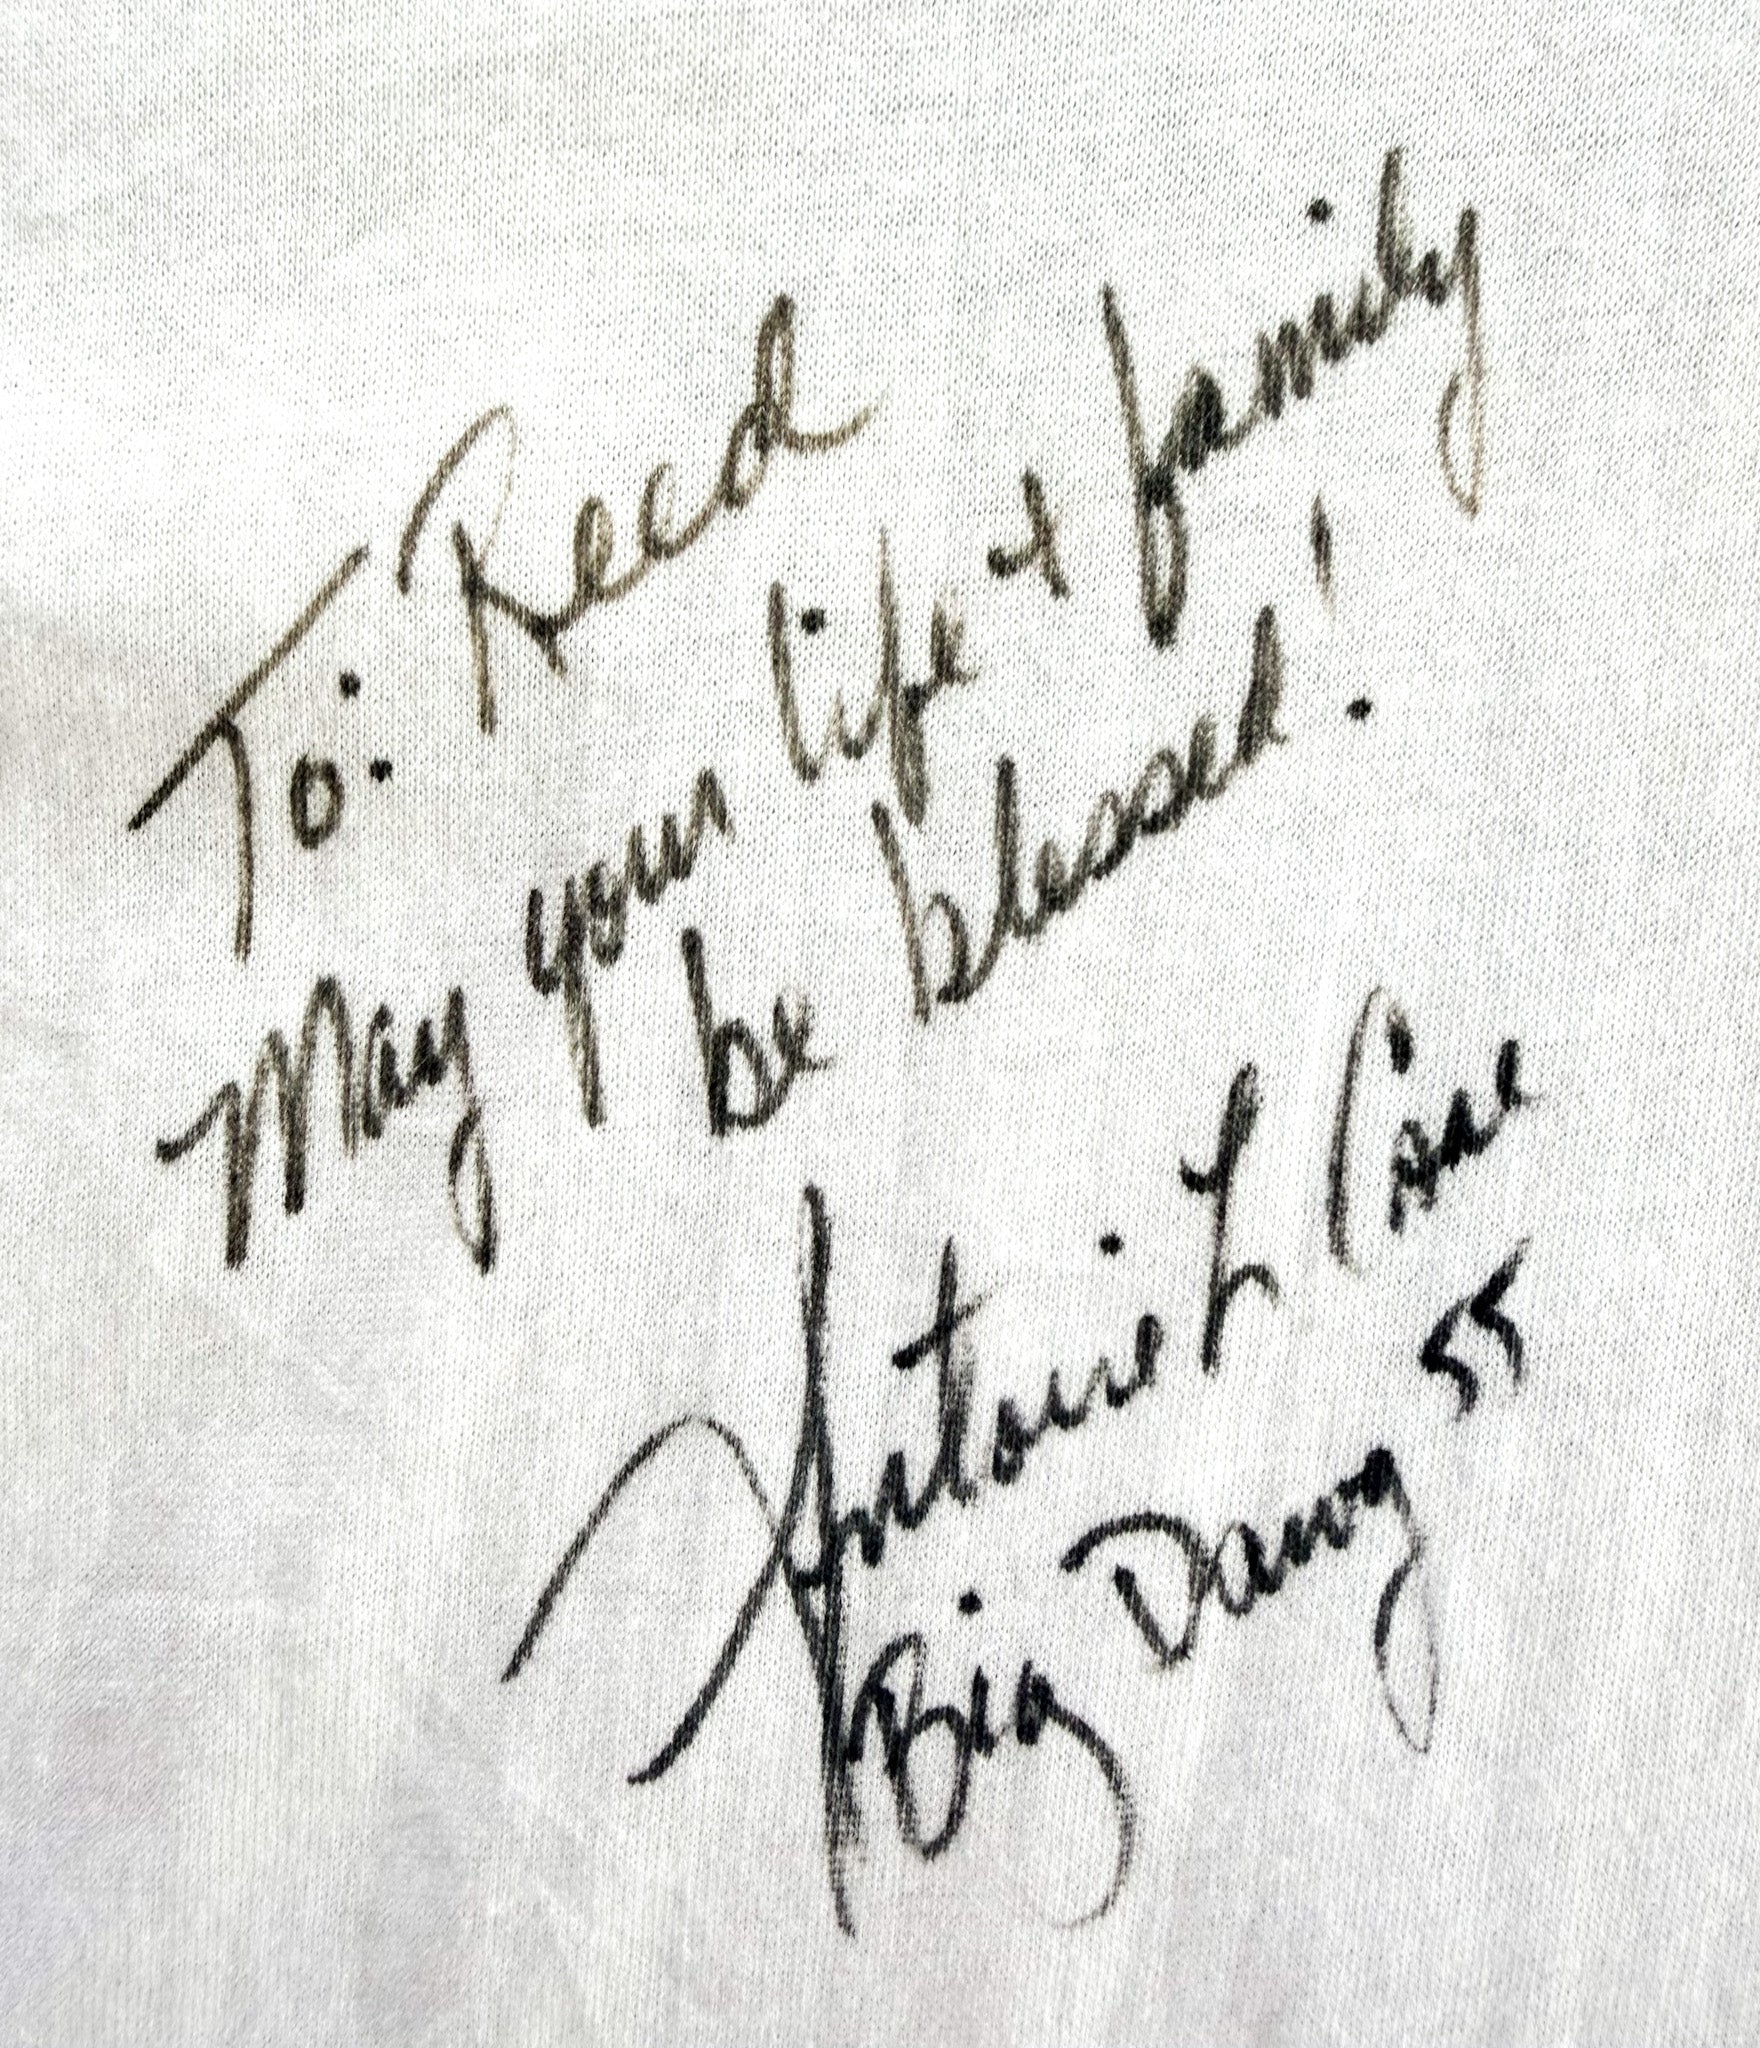 To: Reed
May your life & family
be blessed!
Antoine L Cane
Big Dawg 55